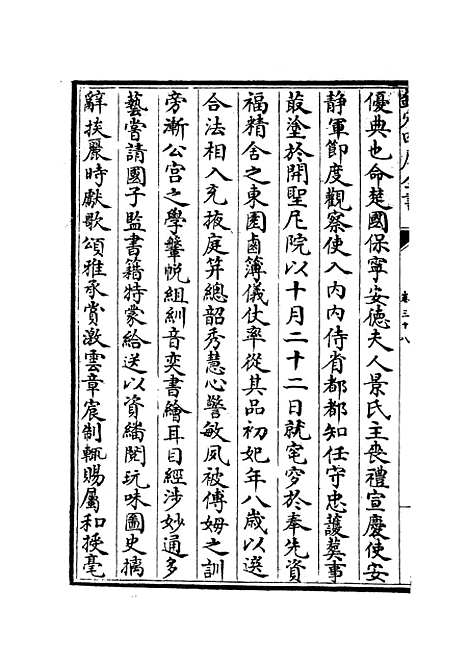 優典也命楚國保寧安徳夫人景氏主喪禮宣慶使安
静軍節度觀察使入内内侍省都都知任守忠䕶葬事
菆塗於開聖尼院以十月二十二日就窀穸於奉先資
福精舍之東園鹵簿儀仗率從其品初妃年八歳以選
合法相入充掖庭笄總韶秀慧心警敏夙被傅姆之訓
旁漸公宫之學鞶帨組紃音奕書繪耳目經涉妙通多
藝嘗請國子監書籍特蒙給送以資繙閲玩味圖史摛
辭掞麗時獻歌頌雅承賞激雲章宸制輒賜屬和挾毫
卷三十八